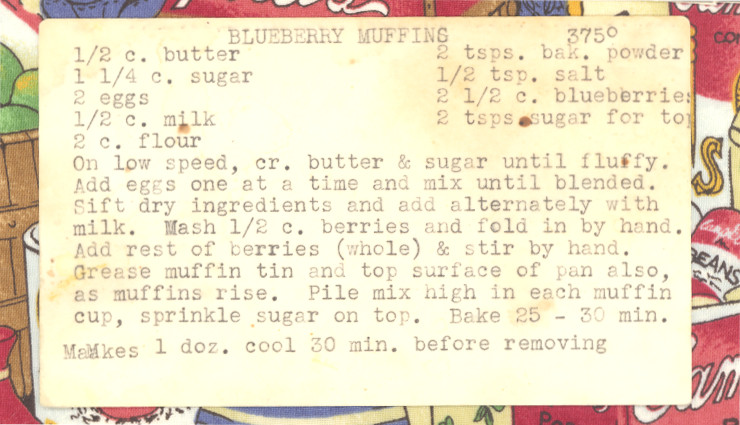 BLUEBERRY MUFFINS 375°
1/2 c. butter 2 tsps. bak. powder
1 1/4 c. sugar 1/2 tsp. salt
2 eggs 2 1/2 c. blueberries
1/2 c. milk 2 tsps. sugar for top
2 c. flour
On low speed, cr. butter & sugar until fluffy.
Add eggs one at a time and mix until blended.
Sift dry ingredients and add alternately with
milk. Mash 1/2 c. berries and fold in by hand.
Add rest of berries (whole) & stir by hand.
Grease muffin tin and top surface of pan also,
as muffins rise. Pile mix high in each muffin
cup, sprinkle sugar on top. Bake 25 - 30 min.
MaMkes 1 doz. cool 30 min. before removing
Campbell's
BEANS